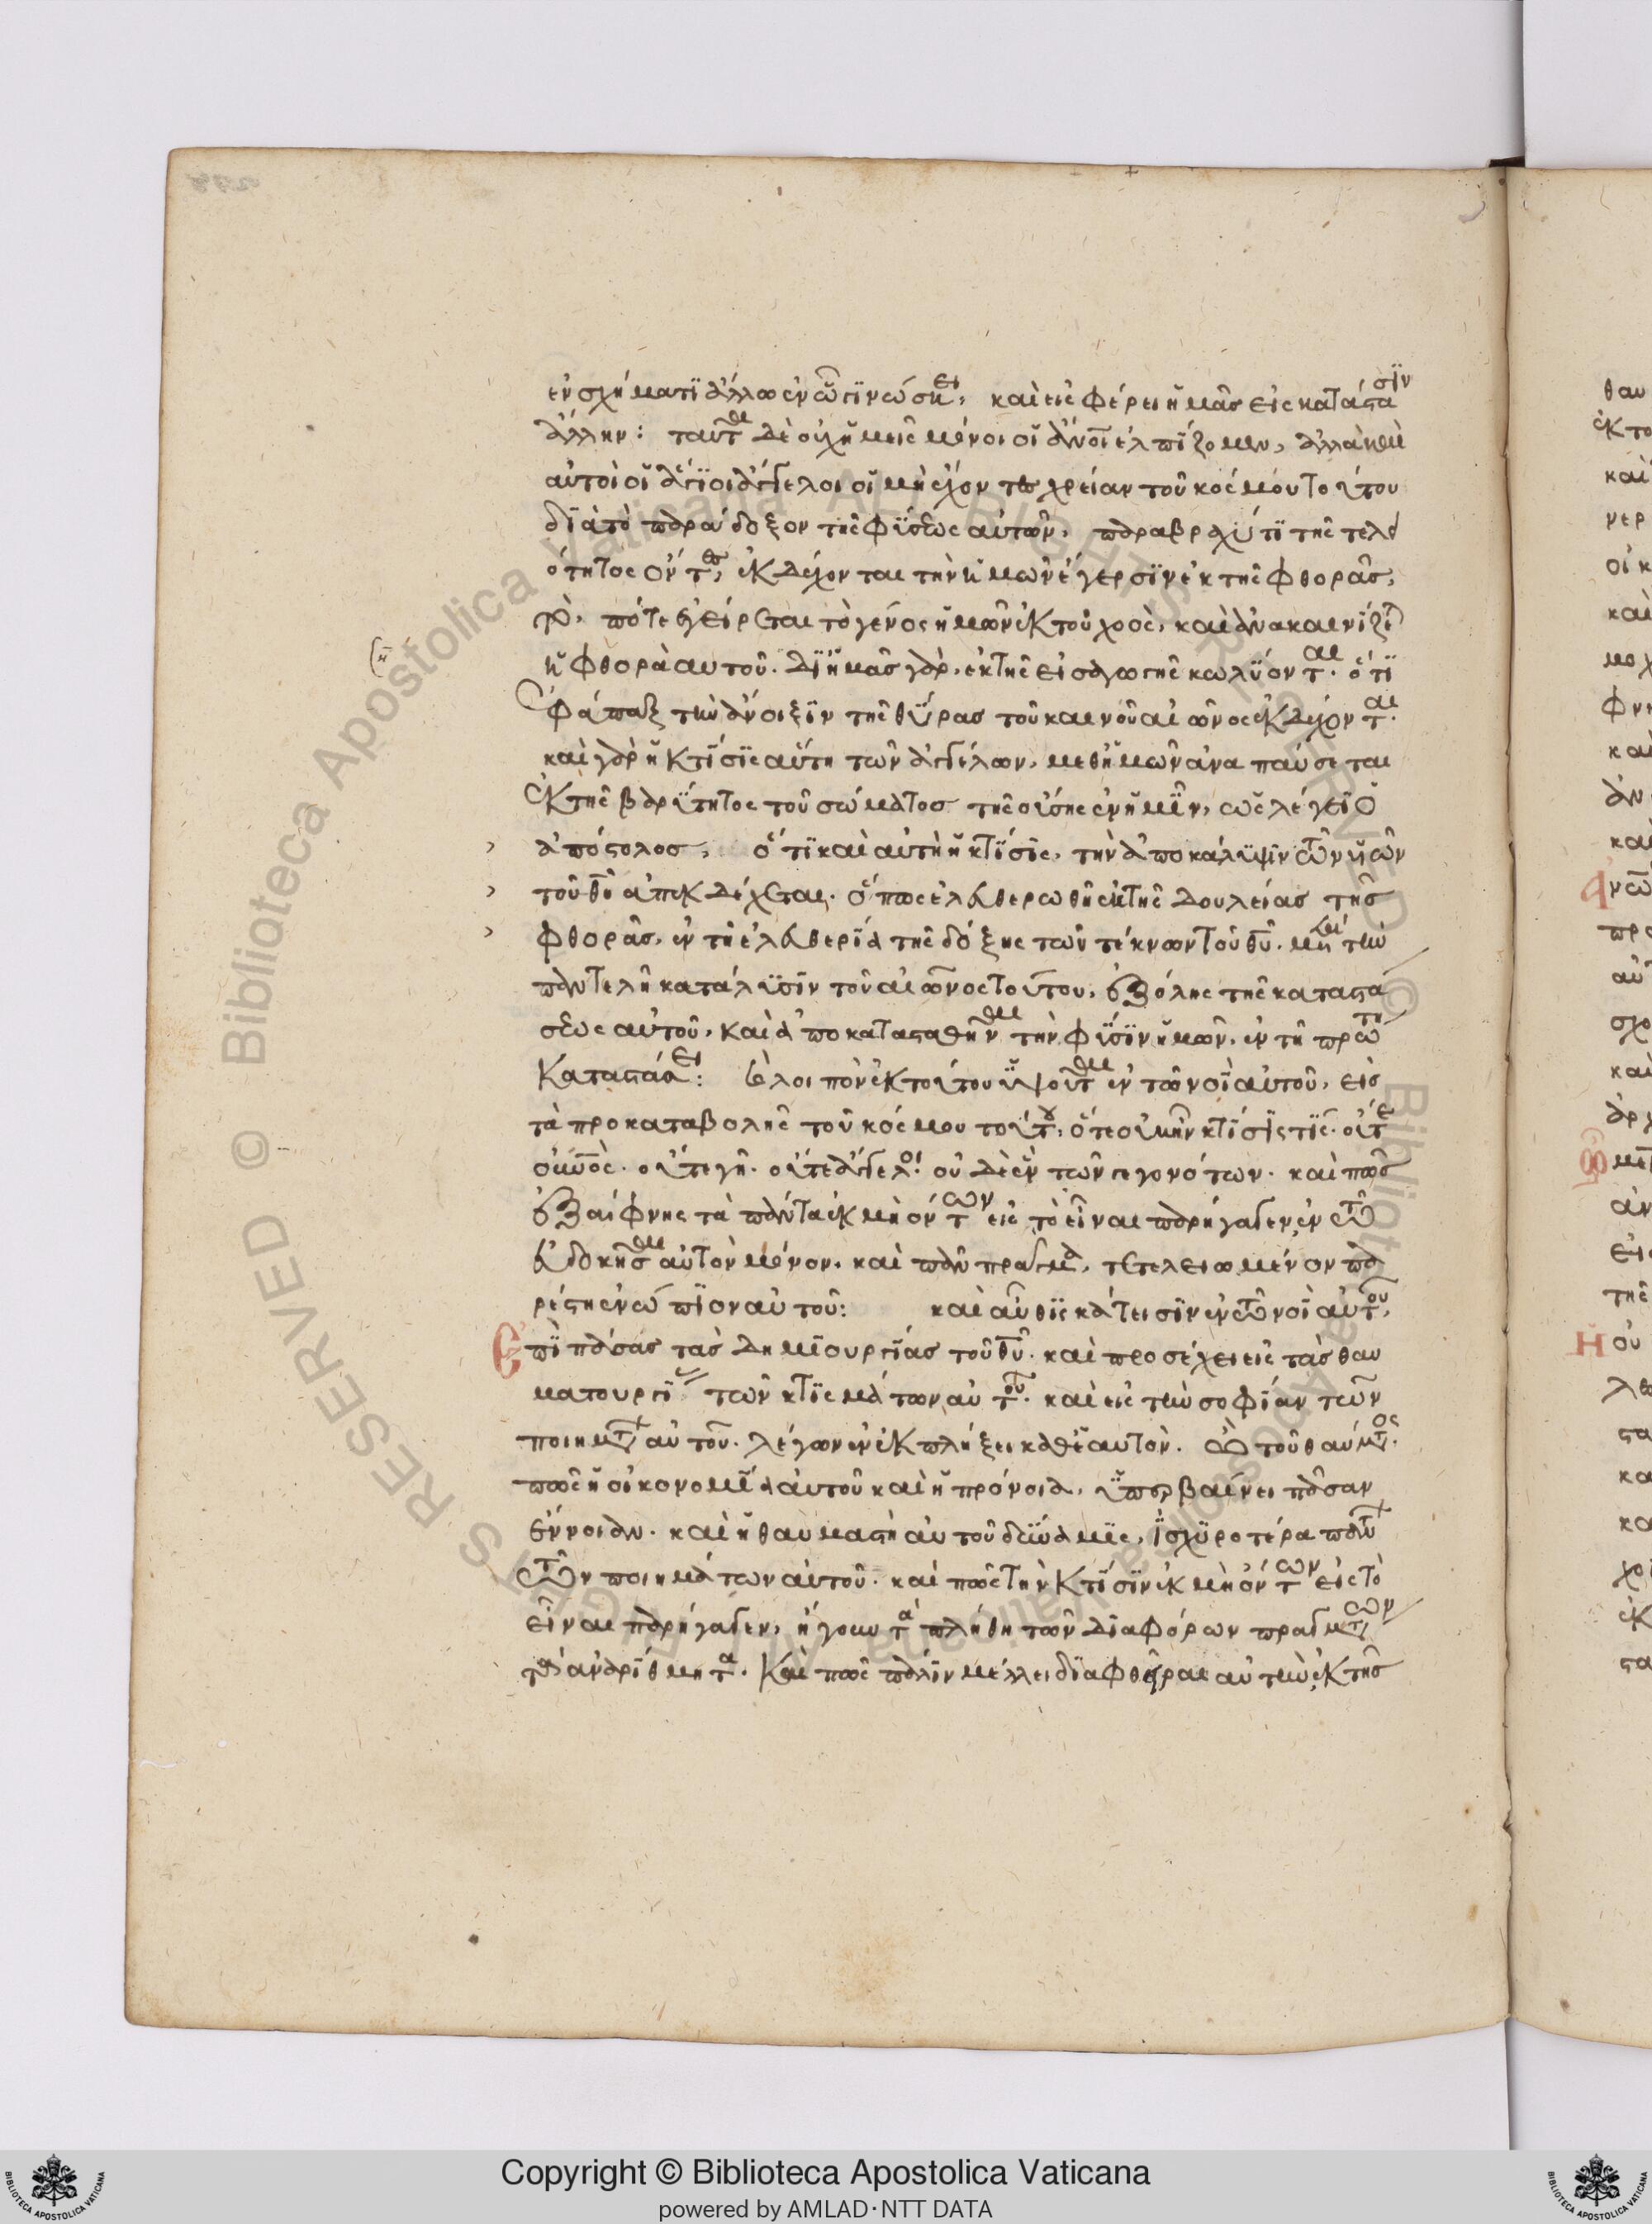 ἐν σχήματι ἄλλω ἐν ὧ γινώσκει, καὶ εἰσφέρει ἡμᾶς εἰς κατάστασιν
ἄλλην: ταῦτα δὲ οὐχ ἡμεῖς μόνοι οἱ ἄνοι ἐλπίζομεν, ἀλλὰ καὶ
αὐτοὶ οἱ ἅγιοι ἄγγελοι οἱ μὴ ἔχοντες χρείαν τοῦ κόσμου τούτου
διὰ τὸ παράδοξον τῆς φύσεως αὐτῶν, παρα βραχύ τι τῆς τελει
ότητος ὄντες, ἐκδέχονται τὴν ἡμῶν ἔγερσιν ἐκ τῆς φθορᾶς,
πότε ἐγείρεται τὸ γένος ἡμῶν ἐκ τοῦ χοὸς, καὶ ἀνακαινίζε
ἡ φθορὰ αυτοῦ. δι ἡμᾶς γὰρ, ἐκ τῆς εἰσαγωγῆς κωλύονται. ὅτι
ἐφάπαξ τὴν ἄνοιξιν τῆς θύρας τοῦ καινοῦ αἰῶνος ἐκδέχονται.
καὶ γὰρ ἡ κτίσις αὕτη τῶν ἀγγέλων, μεθ ἡμῶν ἀναπαύσεται
ἐκ τῆς βαρύτητος τοῦ σώματος τῆς οὔσης ἐν ἡμῖν, ὡς λέγει ὁ
ἀπόστολος, ὅτι καὶ αὐτὴ ἡ κτίσις, τὴν ἀποκάλυψιν τῶν υἱῶν
τοῦ θυ ἀπεκδέχεται. ὅπως ἐλευθερωθῆ ἐκ τῆς δουλείας τῆς
φθορᾶς, ἐν τῆ ἐλευθερία τῆς δόξης τῶν τέκνων τοῦ θυ. μετὰ τὴν
παντελῆ κατάλυσιν τοῦ αἰῶνος τούτου, ἐξ ὅλης τῆς καταστά
σεως αὐτοῦ, καὶ ἀποκατασταθῆναι τὴν φύσιν ἡμῶν, ἐν τῆ πρώτη
καταστάσει: λοιπὸν ἐκ τούτου ὑψοῦται ἐν τῶ νοῒ αὐτοῦ, εἰς
τὰ προ καταβολῆς τοῦ κόσμου τούτου, ὅτε οὐκ ἦν κτίσις τίς. οὔτε
οὐνος. οὔτε γῆ. οὔτε ἄγγελοι. οὐδὲ ἓν τῶν γεγονότων. καὶ πῶς
ἐξαίφνης τὰ πάντα ἐκ μὴ ὄντων εἰς τὸ εἶναι παρήγαγεν, ἐν τῶ
εὐδοκῆσαι αὐτὸν μόνον. καὶ πᾶν πρᾶγμα, τετελειωμένον πα
ρέστη ἐνώπιον αὐτοῦ: καὶ αὖθις κάτεισιν ἐν τῶ νοῒ αὐτοῦ,
Ἐπὶ πάσας τὰς δημιουργίας τοῦ θυ. καὶ προσέχει εἰς τὰς θαυ
ματουργίας τῶν κτισμάτων αὐτοῦ. καὶ εἰς τὴν σοφίαν τῶν
ποιημάτων αὐτοῦ. λέγων ἐν ἐκπλήξει καθ ἑαυτὸν. Ὢ τοῦ θαύματος.
πῶς ἡ οἰκονομία αὐτοῦ καὶ ἡ πρόνοια, ὑπερβαίνει πᾶσαν
ἔννοιαν. καὶ ἡ θαυμαστὴ αὐτοῦ δύναμις, ἰσχυροτέρα πάντων
τῶν ποιημάτων αὐτοῦ. καὶ πῶς τὴν κτίσιν ἐκ μὴ ὄντων εἰς τὸ
εἶναι παρήγαγεν, ἤγουν τὰ πλήθη τῶν διαφόρων πραγμάτων
τὰ ἀναρίθμητα. καὶ πῶς πάλιν μέλλει διαφθεῖραι αὐτὴν, ἐκ τῆς